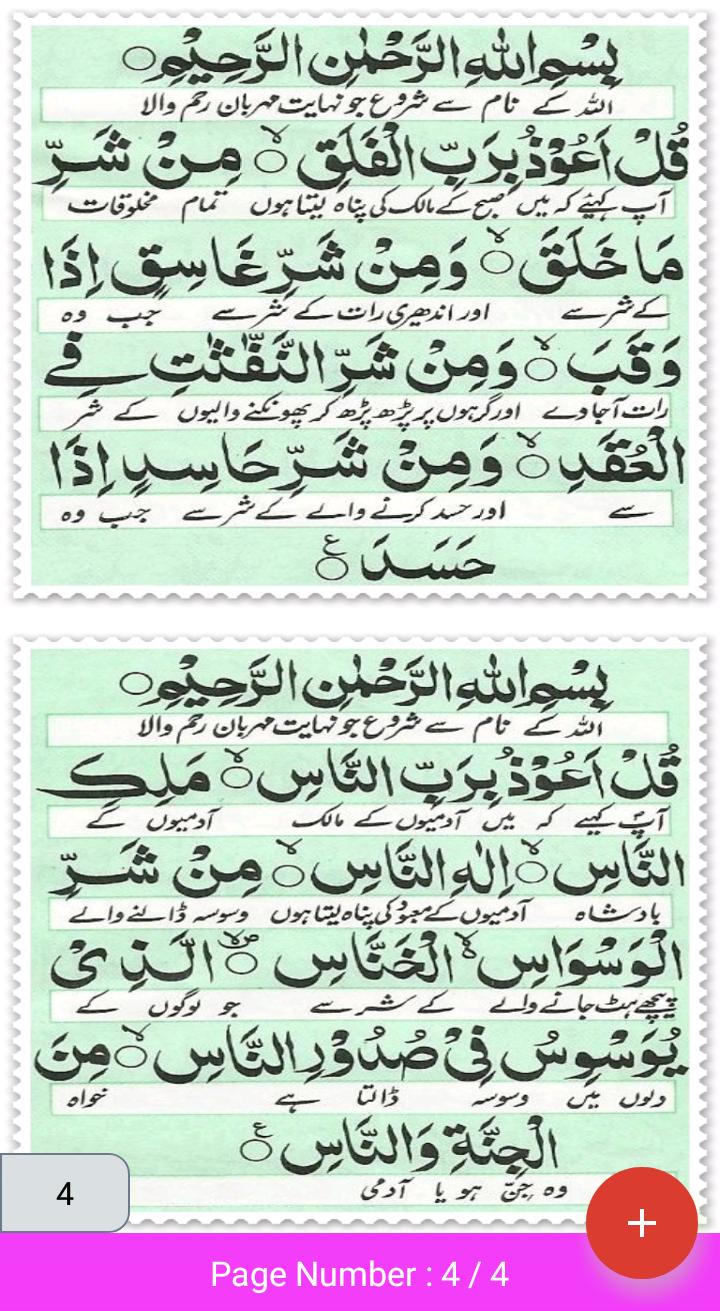 بِسْمِ اللهِ الرَّحْمٰنِ الرَّحِيْمِ○
اللہ کے نام سے شروع جو نہایت مہربان رحم والا
قُلْ اَعُوْذُ بِرَبِّ الْفَلَقِ ○ۙ مِنْ شَرِّ
آپ کہیئے کہ میں صبح کے مالک کی پناہ لیتا ہوں تمام مخلوقات
مَا خَلَقَ ○ۙ وَمِنْ شَرِّ غَاسِقٍ اِذَا
کے شر سے اور اندھیری رات کے شر سے جب وہ
وَقَبَ ○ۙ وَمِنْ شَرِّ النَّفّٰثٰتِ فِے
رات آجاوے اور گرہوں پر پڑھ پڑھ کر پھونکنے والیوں کے شر
الْعُقَدِ ○ۙ وَمِنْ شَرِّ حَاسِدٍ اِذَا
سے اور حسد کرنے والے کے شر سے جب وہ
حَسَدَ ○ع
بِسْمِ اللهِ الرَّحْمٰنِ الرَّحِيْمِ○
اللہ کے نام سے شروع جو نہایت مہربان رحم والا
قُلْ اَعُوْذُ بِرَبِّ النَّاسِ ○ۙ مَلِكِ
آپ کہیے کہ میں آدمیوں کے مالک آدمیوں کے
النَّاسِ ○ۙ اِلٰهِ النَّاسِ ○ۙ مِنْ شَرِّ
بادشاہ آدمیوں کے معبود کی پناہ لیتا ہوں وسوسہ ڈالنے والے
الْوَسْوَاسِ ۙ الْخَنَّاسِ ○ۙص الَّذِىْ
پیچھے ہٹ جانے والے کے شر سے جو لوگوں کے
يُوَسْوِسُ فِىْ صُدُوْرِ النَّاسِ ○ۙ مِنَ
دلوں میں وسوسہ ڈالتا ہے خواہ
الْجِنَّةِ وَالنَّاسِ ○ع
وہ جنّ ہو یا آدمی
4
+
Page Number : 4 / 4